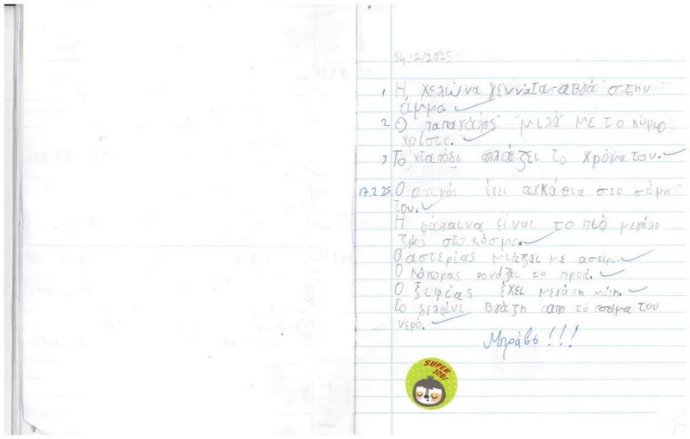 14/2/2025
1 Η χελώνα γεννάτα αβγά στην
άμμο.
2. Ο παπαγάλος μιλά με το κύριο
χρίστο.
3 Το χταπόδι αλλάζει το χρόμα του.
17.2.25 Ο έχι αγκάθια στο σόμα
του.
Η φάλαινα είναι το πιό μεγάλο
ζώο στο κόσμο.
Ο αστερίας μιάζει με αστέρι.
Ο κόκορας φονάζει το προί.
Ο ξιφίας έχει μεγάλη μίτη.
το δελφίνι βγάζη απο το στόμα του
νερό.
Μπράβο!!!
SUPER
JOB!